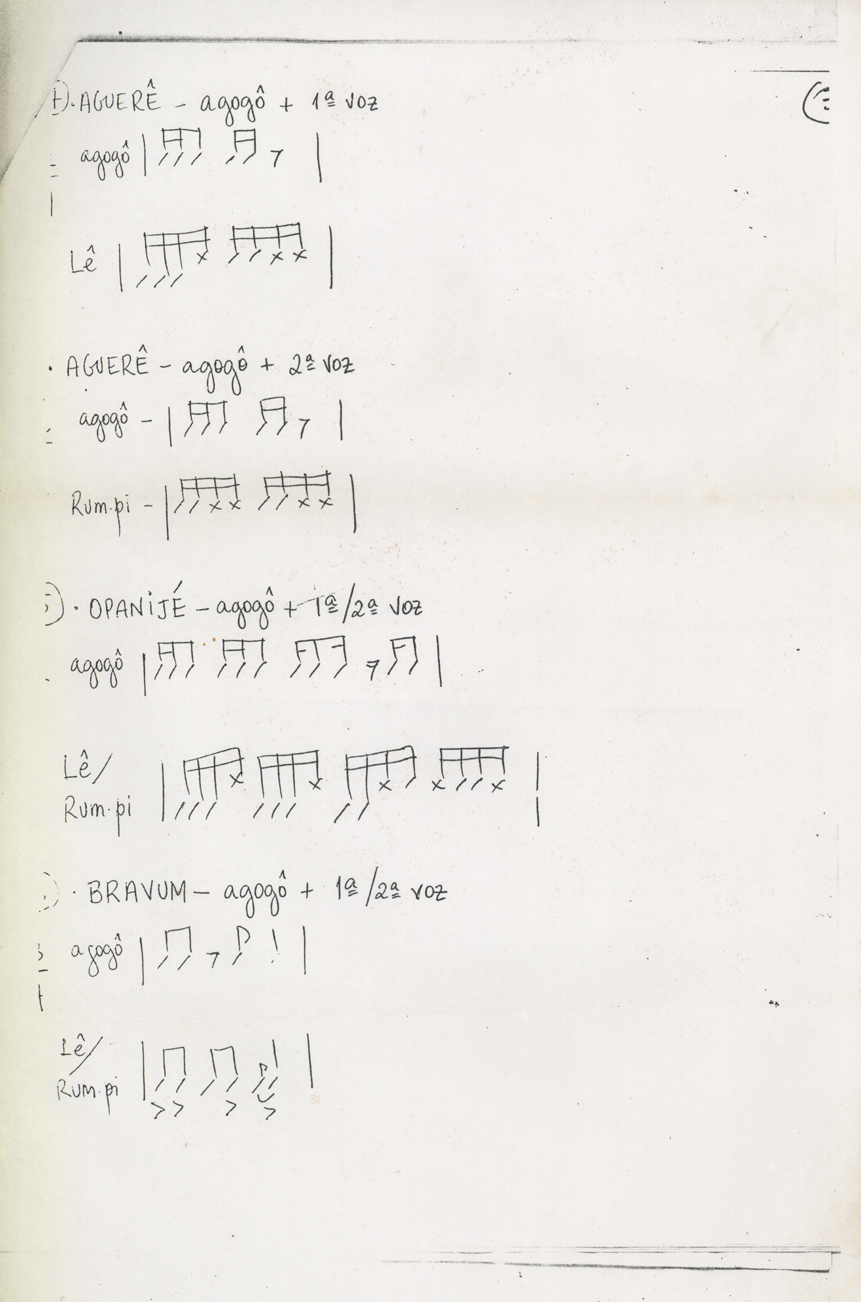 · AGUERÊ - agogô + 1ª voz
agogô
Lê
· AGUERÊ - agogô + 2ª voz
agogô -
Rum·pi -
· OPANiJÉ - agogô + 1ª/2ª voz
agogô
Lê/
Rum·pi
· BRAVUM - agogô + 1ª/2ª voz
agogô
Lê/
Rum·pi